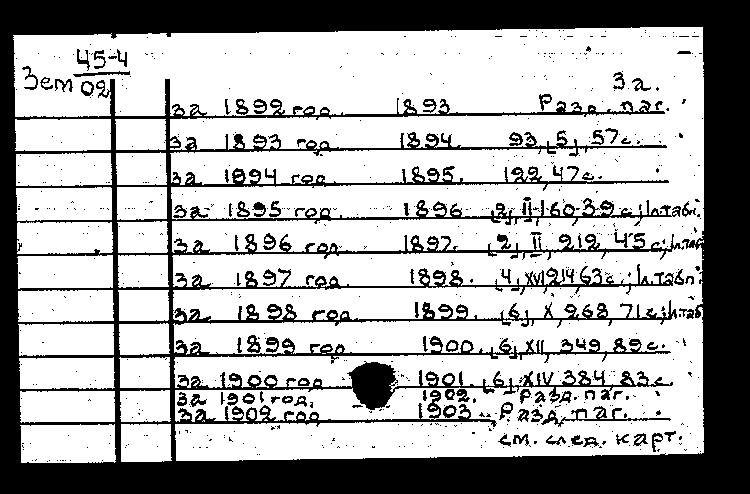 45-4
Зем 02
3а.
за 1892 год. 1893 Разд. паг.
за 1893 год. 1894. 93, [5], 57с.
за 1894 год. 1895. 122, 47с.
за 1895 год. 1896 [2], II, 160, 39 с.; 1л.табл.
за 1896 год. 1897. [2], II, 212, 45 с.; 1л.таб
за 1897 год 1898. [4], XVI, 214, 63с.; 1л.табл.
за 1898 год. 1899. [6], X, 268, 71 с.; 1л.таб
за 1899 год 1900. [6], XII, 349, 89с.
за 1900 год 1901. [6], XIV, 384, 83с.
за 1901 год. 1902. Разд. паг.
за 1902 год 1903 Разд. паг.
см. след. карт.